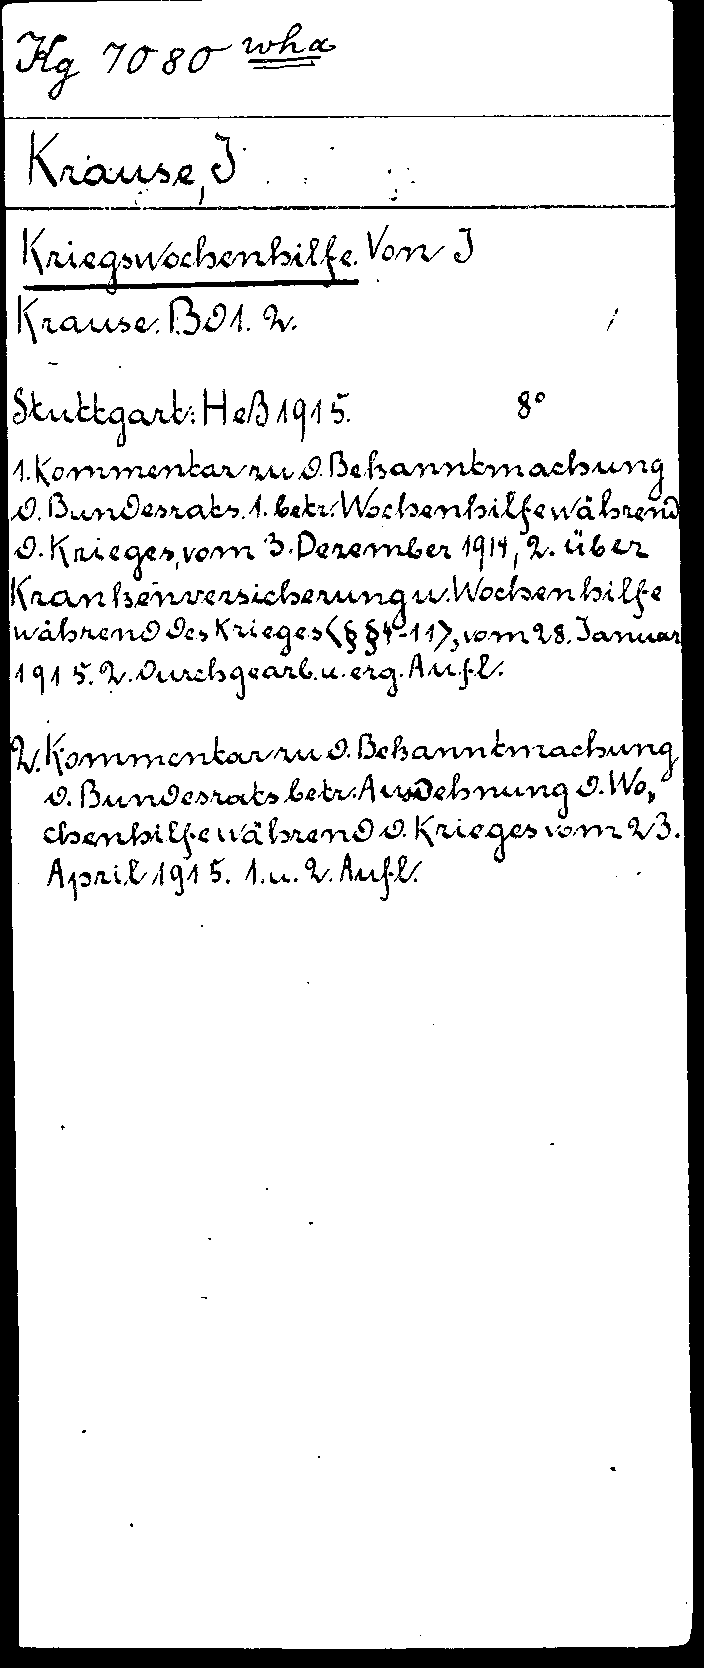 Kg 7080 wha
Krause, J
Kriegswochenhilfe. Von J
Krause. Bd 1. 2.
Stuttgart: Heß 1915. 8°
1. Kommentar zu d. Bekanntmachung
d. Bundesrats. 1. betr. Wochenhilfe während
d. Krieges, vom 3. Dezember 1914, 2. über
Krankenversicherung u. Wochenhilfe
während des Krieges <§§ 4-11>, vom 28. Januar
1915. 2. durchgearb. u. erg. Aufl.
2. Kommentar zu d. Bekanntmachung
d. Bundesrats betr. Ausdehnung d. Wo„
chenhilfe während d. Krieges vom 23.
April 1915. 1. u. 2. Aufl.